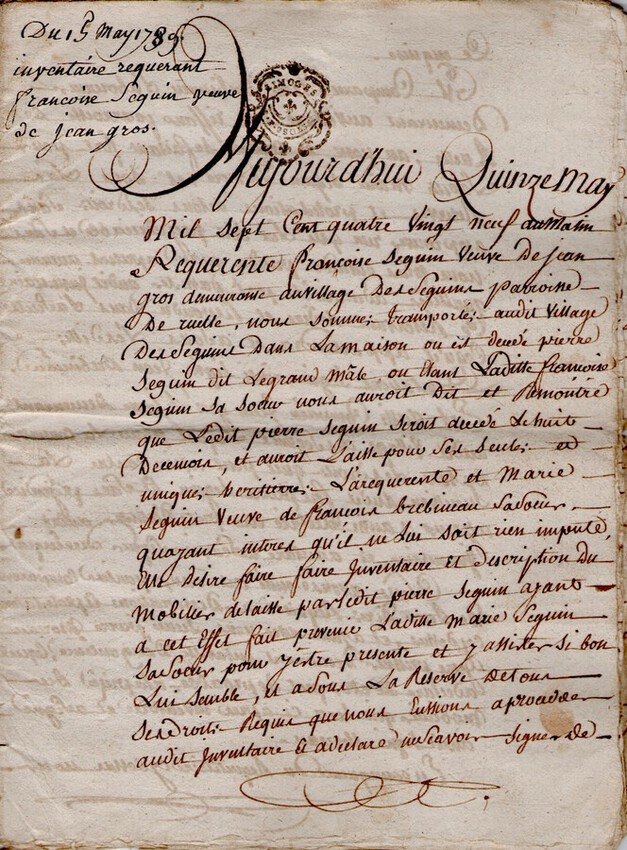 Du 15 May 1789.
inventaire requerant
francoise Seguin veuve
de jean gros.
LIMOGES
Aujourd'hui Quinze May
Mil Sept Cent quatre Vingt neuf au matin
Requerente françoise Seguin Veuve De jean
gros demeurante au village Des Seguins parroisse
De ruelle, nous sommes transportés audit Village
Des Seguins Dans La maison ou est decédé pierre
Seguin dit Legrand Mâle, ou Etant Laditte francoise
Seguin Sa Soeur nous auroit Dit et Remontré
que Ledit pierre Seguin seroit decédé Le huit
Decemois, et auroit Laissé pour Ses Seules et
uniques heritierres La requerente et Marie
Seguin Veuve de francois brebineau Sa Soeur,
quayant interes qu'il ne Lui soit rien imputé,
Elle désire faire faire Inventaire et Description Du
Mobilier delaissé par Ledit pierre Seguin ayant
a cet Effet fait prevenir Laditte Marie Seguin
Sa Soeur pour y estre presente et y assister si bon
Lui semble, et a Sous La Reserve de tous
Ses droits Requis que nous Eussions a proceder
audit Inventaire Et a declaré ne Scavoir signer de